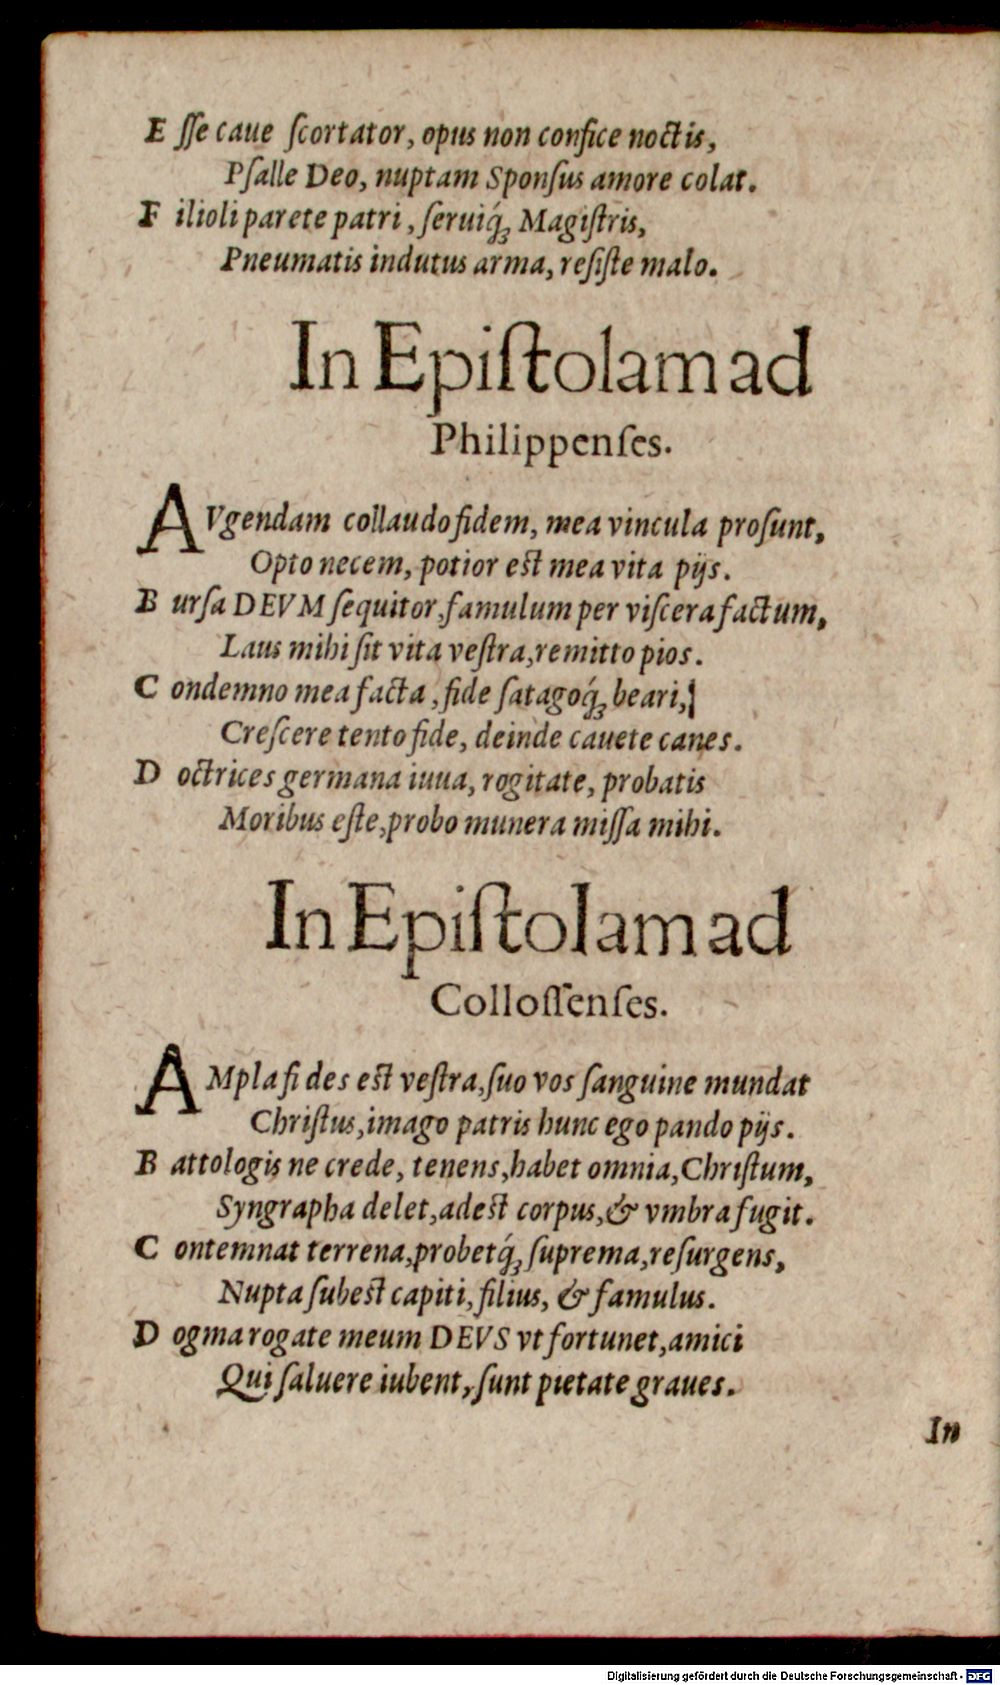 E ſſe caue ſcortator, opus non confice noctis,
Pſalle Deo, nuptam Sponſus amore colat.
F ilioli parete patri, ſeruiq́ꝫ Magiſtris,
Pneumatis indutus arma, reſiſte malo.
In Epiſtolam ad
Philippenſes.
AVgendam collaudo fidem, mea vincula proſunt,
Opto necem, potior eſt mea vita pijs.
B urſa DEVM ſequitor, famulum per viſcera factum,
Laus mihi ſit vita veſtra, remitto pios.
C ondemno mea facta, fide ſatagoq́ꝫ beari,
Creſcere tento fide, deinde cauete canes.
D octrices germana iuua, rogitate, probatis
Moribus eſte, probo munera miſſa mihi.
In Epiſtolam ad
Colloſſenſes.
AMpla fides eſt veſtra, ſuo vos ſanguine mundat
Chriſtus, imago patris hunc ego pando pijs.
B attologis ne crede, tenens, habet omnia, Chriſtum,
Syngrapha delet, adeſt corpus, & vmbra fugit.
C ontemnat terrena, probetq́ꝫ ſuprema, reſurgens,
Nupta ſubeſt capiti, filius, & famulus.
D ogma rogate meum DEVS vt fortunet, amici
Qui ſaluere iubent, ſunt pietate graues.
In
Digitalisierung gefördert durch die Deutsche Forschungsgemeinschaft - DFG